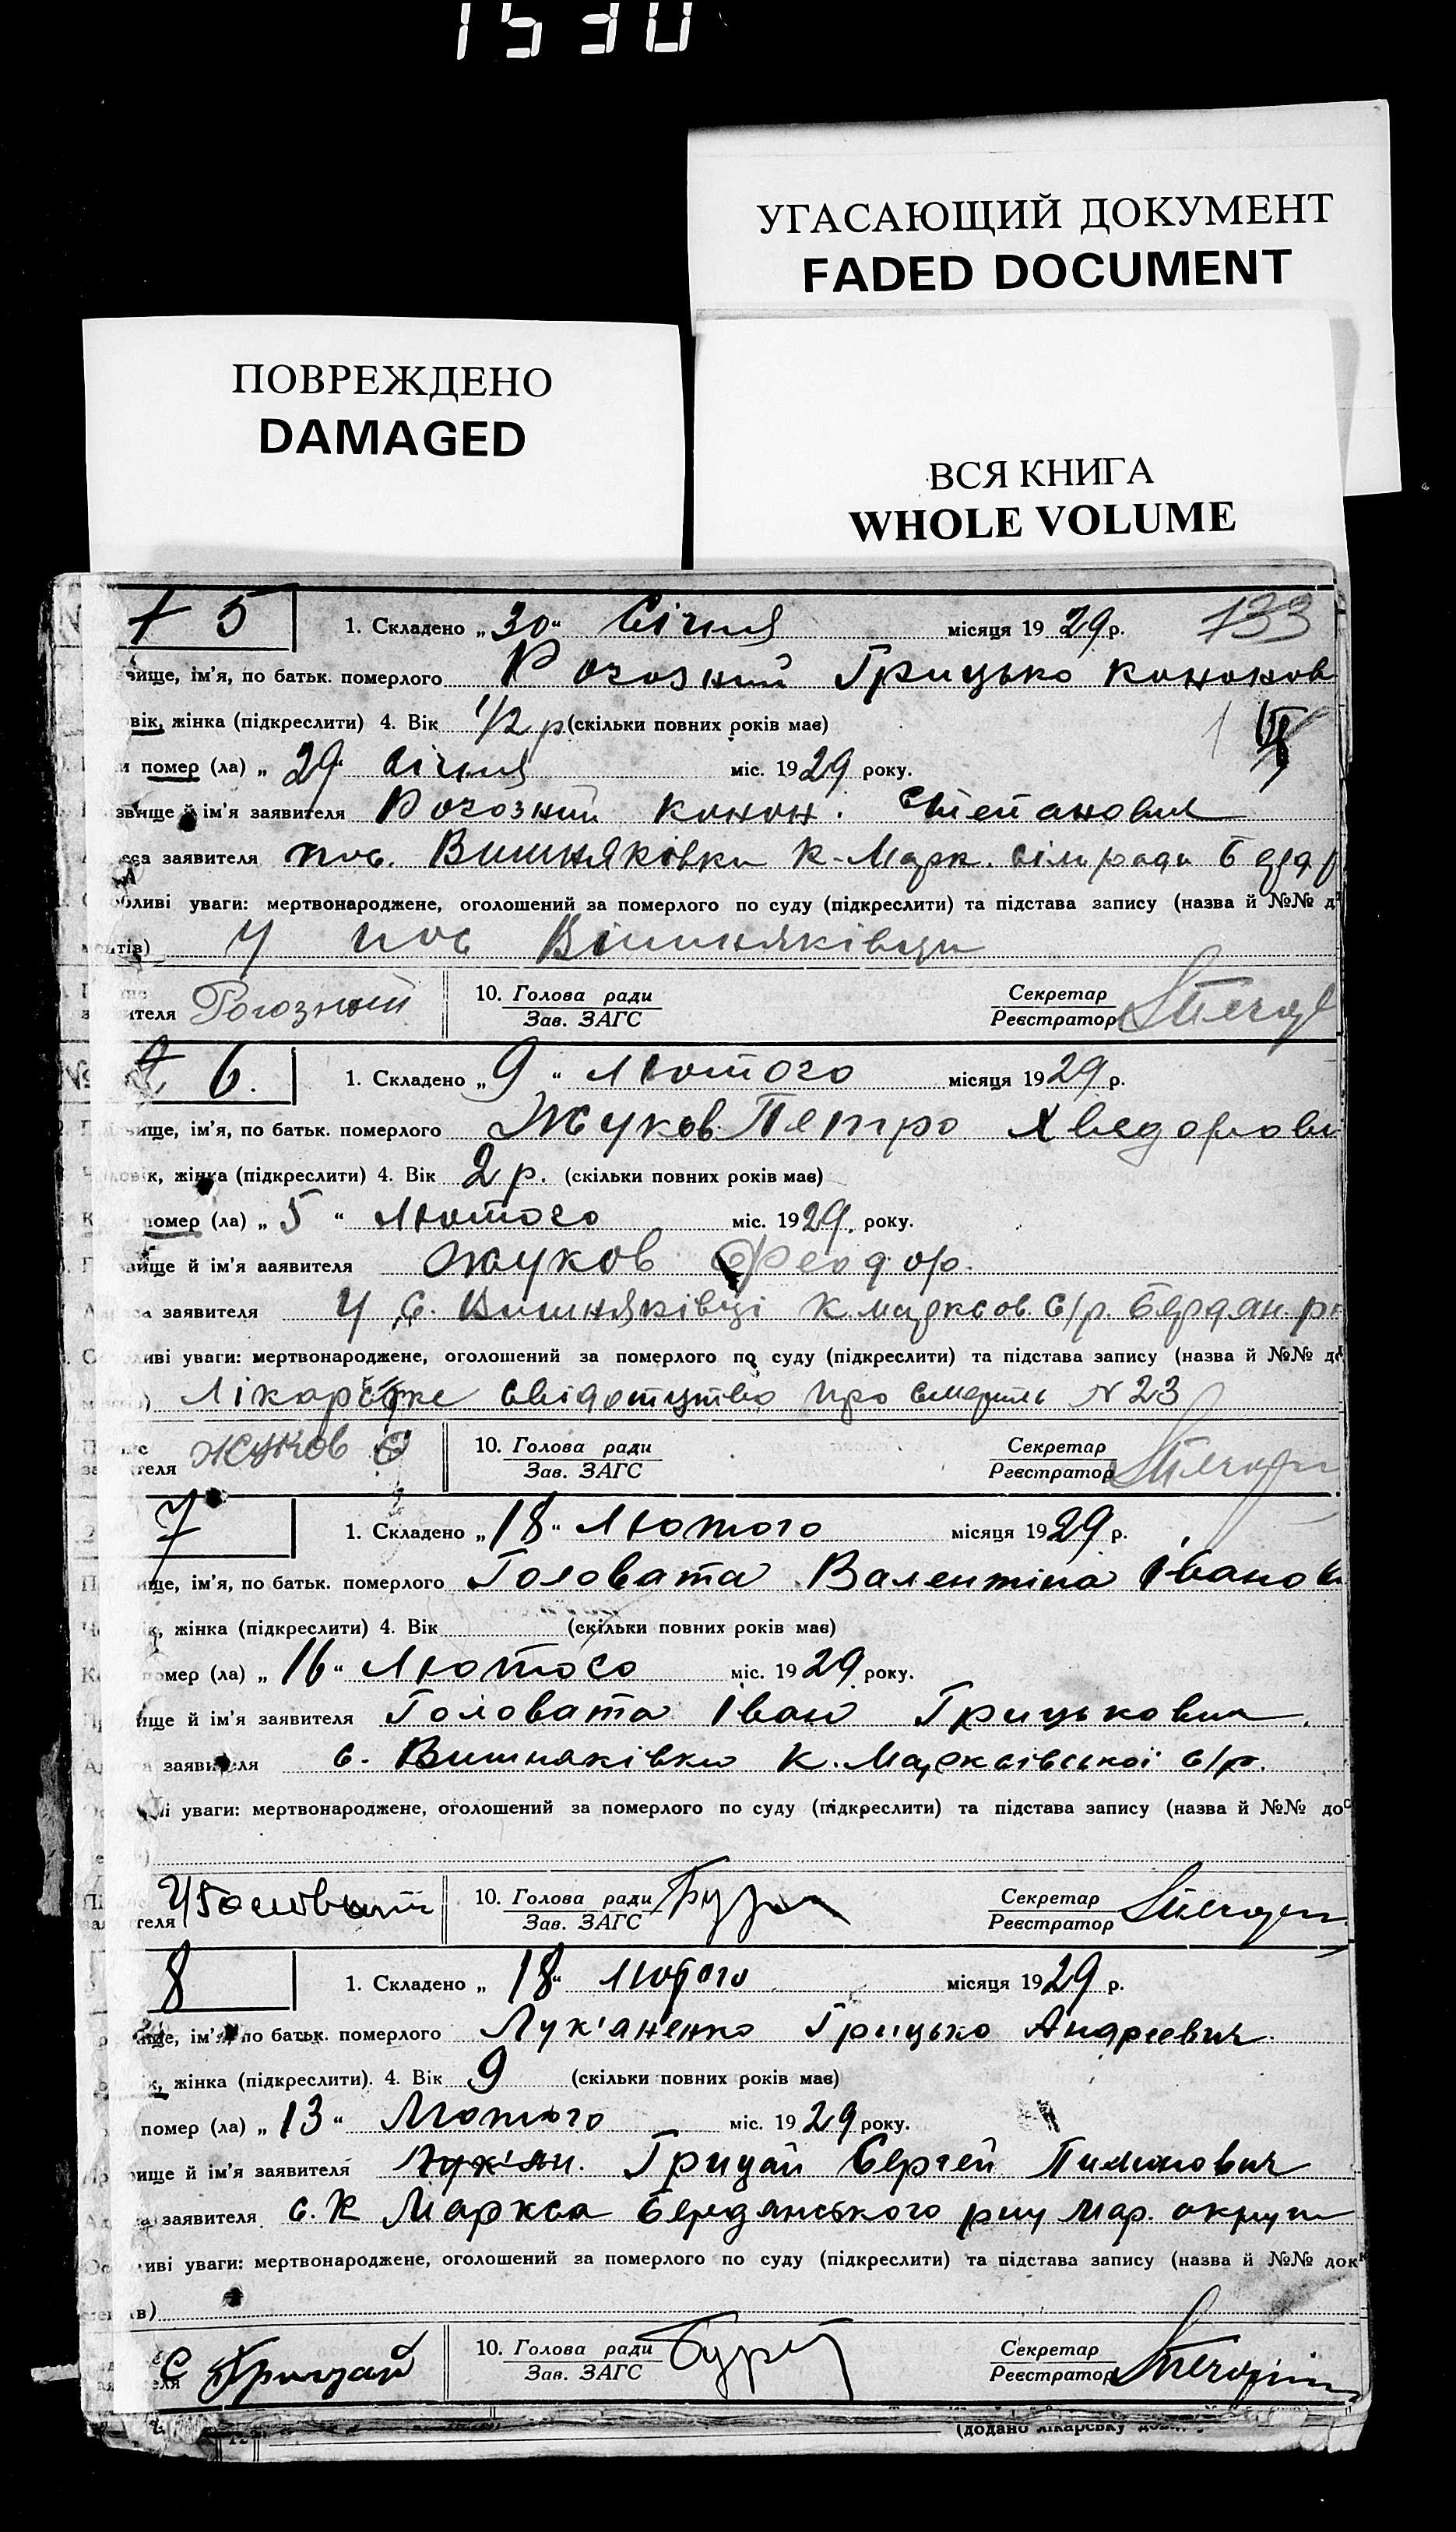 1530
УГАСАЮЩИЙ ДОКУМЕНТ
FADED DOCUMENT
ПОВРЕЖДЕНО
DAMAGED
ВСЯ КНИГА
WHOLE VOLUME
5 1. Складено „30“ Січня місяця 1929 р. 133
вище, ім'я, по батьк. померлого Рогозний Грицько Кононов
вік, жінка (підкреслити) 4. Вік 1/2 р (скільки повних років має)
и помер (ла) „29“ Січня міс. 1929 року.
звище й ім'я заявителя Рогозний Конон. Степанович
еса заявителя пос. Вишняківки К-Марк. сільради Берд р
бливі уваги: мертвонароджене, оголошений за померлого по суду (підкреслити) та підстава запису (назва й №№ д
ентів) У пос Вишняківци
теля Рогозный 10. Голова ради Зав. ЗАГС Секретар Реєстратор
№ 6. 1. Складено „9“ Лютого місяця 1929 р.
вище, ім'я, по батьк. померлого Жуков Петро Хведорови
к, жінка (підкреслити) 4. Вік 2 р. (скільки повних років має)
помер (ла) „5“ Лютого міс. 1929. року.
вище й ім'я заявителя Жуков Феодор.
са заявителя У с. Вишняківці К.марксов. с/р. Бердян. р
ливі уваги: мертвонароджене, оголошений за померлого по суду (підкреслити) та підстава запису (назва й №№ до
) Лікарське свідотцтво про смерть N 23
теля Жуков 10. Голова ради Зав. ЗАГС Секретар Реєстратор
7 1. Складено „18“ Лютого місяця 1929 р.
ще, ім'я, по батьк. померлого Головата Валентіна Іванов
к, жінка (підкреслити) 4. Вік (скільки повних років має)
омер (ла) „16“ Лютого міс. 1929 року.
ище й ім'я заявителя Головата Іван Грицькович.
заявителя с. Вишняківки К. Марксівської с/р.
і уваги: мертвонароджене, оголошений за померлого по суду (підкреслити) та підстава запису (назва й №№ до
)
теля 10. Голова ради Зав. ЗАГС Секретар Реєстратор
8 1. Складено „18“ лютого місяця 1929 р.
ще, ім'я, по батьк. померлого Лук'яненко Грицько Андреевич.
к, жінка (підкреслити). 4. Вік 9 (скільки повних років має)
помер (ла) „13“ Лютого міс. 1929 року.
ище й ім'я заявителя Лук'ян. Грицай Сергей Пименович
заявителя с. К Маркса Бердянського р-ну Мар. округи
ливі уваги: мертвонароджене, оголошений за померлого по суду (підкреслити) та підстава запису (назва й №№ док
ів)
С Грицай 10. Голова ради Зав. ЗАГС Секретар Реєстратор
(додано лікарську